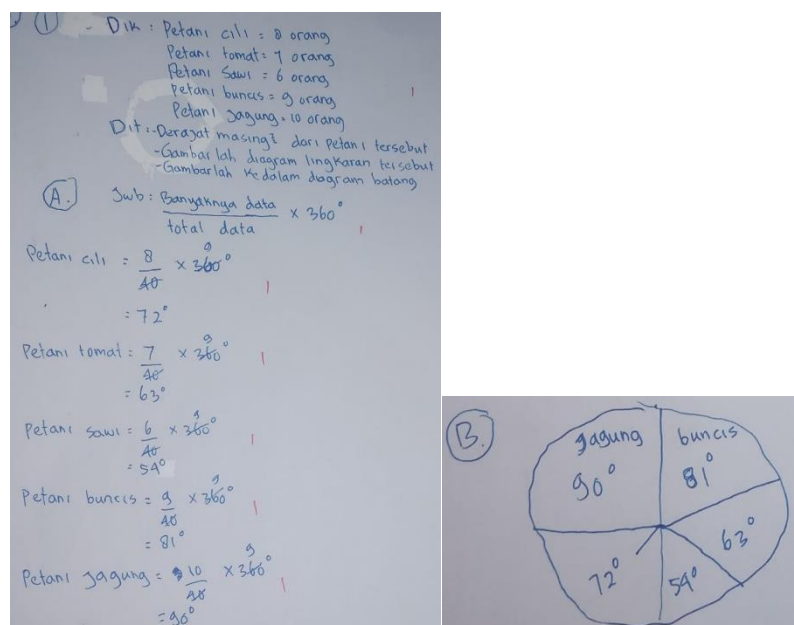 ① - Dik : Petani cili = 8 orang
Petani tomat = 7 orang
Petani Sawi = 6 orang
Petani buncis = 9 orang
Petani jagung = 10 orang
Dit : - Derajat masing² dari petani tersebut
- Gambar lah diagram lingkaran tersebut
- Gambarlah kedalam diagram batang
A. Jwb : Banyaknya data / total data × 360°
Petani cili = 8/40 × 360° 9
= 72°
Petani tomat = 7/40 × 360° 9
= 63°
Petani sawi = 6/40 × 360° 9
= 54°
Petani buncis = 9/40 × 360° 9
= 81°
Petani jagung = 10/40 × 360° 9
= 90°
B.
jagung buncis
90° 81°
63°
72° 54°